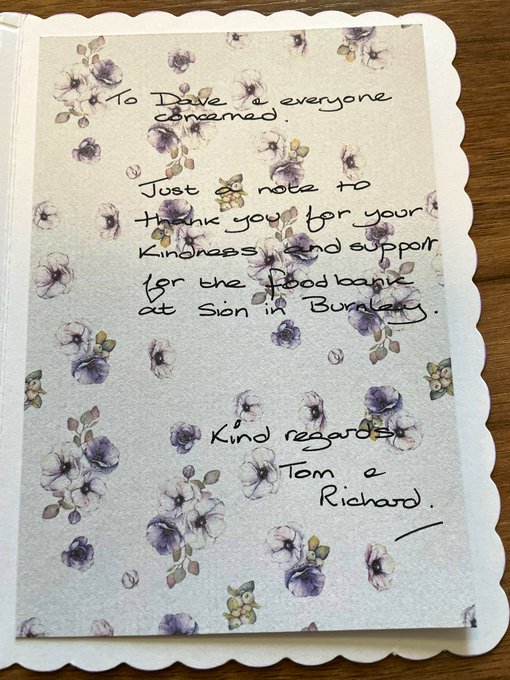 To Dave & everyone
concerned.
Just a note to
thank you for your
kindness and support
for the foodbank
at Sion in Burnley.
Kind regards
Tom &
Richard.